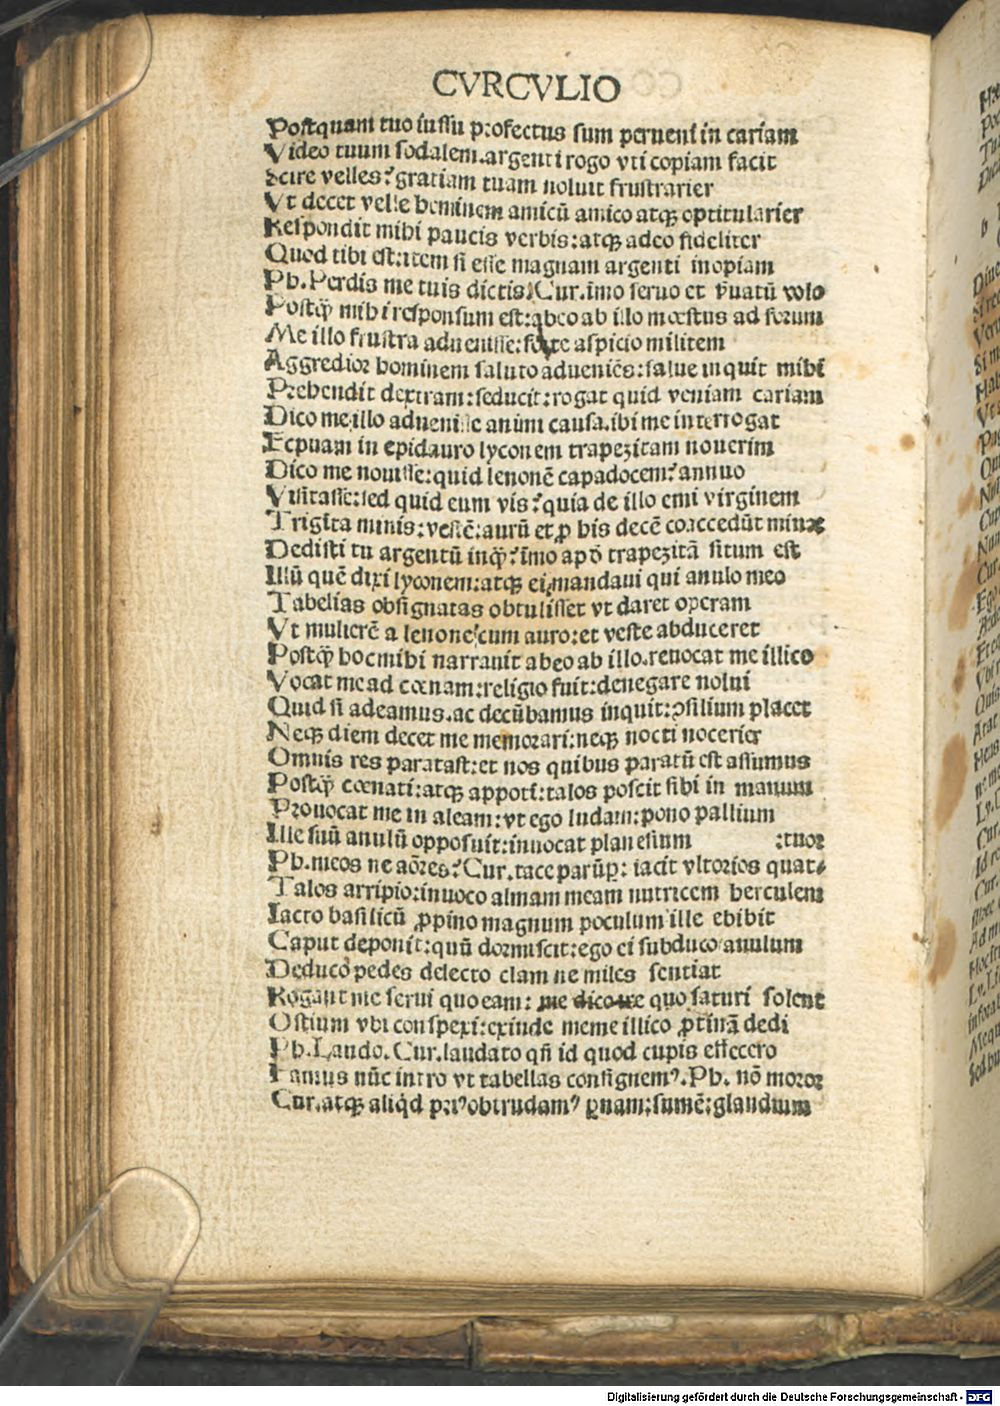 CVRCVLIO
Postquam tuo iussu profectus sum perueni in cariam
Video tuum sodalem.argenti rogo vti copiam facit
Scire velles?gratiam tuam noluit frustrarier
Vt decet velle hominem amicū amico atqꝫ opitularier
Respondit mihi paucis verbis:atqꝫ adeo fideliter
Quod tibi est:item si esse magnam argenti inopiam
Ph.Perdis me tuis dictis.Cur.imo seruo et ꝓuatū volo
Postqꝫ mihi responsum est:abeo ab illo mœstus ad forum
Me illo frustra aduenisse:forte aspicio militem
Aggredior hominem saluto adueniēs:salue inquit mihi
Prehendit dextram:seducit:rogat quid veniam cariam
Dico me illo aduenisse animi causa.ibi me interrogat
Ecquam in epidauro lyconem trapezitam nouerim
Dico me nouisse:quid lenonē capadocem?annuo
Visitasse:sed quid eum vis?quia de illo emi virginem
Triginta minis:vestē:aurū et ꝓ his decē coaccedūt minæ
Dedisti tu argentū inqꝫ?imo apd̄ trapezitā situm est
Illū quē dixi lyconem:atqꝫ ei mandaui qui anulo meo
Tabellas obsignatas obtulisset vt daret operam
Vt mulierē a lenone cum auro:et veste abduceret
Postqꝫ hoc mihi narrauit abeo ab illo.reuocat me illico
Vocat me ad cœnam:religio fuit:denegare nolui
Quid si adeamus.ac decūbamus inquit:ꝯsilium placet
Neqꝫ diem decet me memorari:neqꝫ nocti nocerier
Omnis res paratast:et nos quibus paratū est assumus
Postqꝫ cœnati:atqꝫ appoti:talos poscit sibi in manum
Prouocat me in aleam:vt ego ludam:pono pallium
Ille suū anulū opposuit:inuocat planesium :tuor
Ph.meos ne aōres?Cur.tace parūꝑ: iacit vltorios quat-
Talos arripio:inuoco almam meam nutricem herculem
Iacto basilicū ꝓpino magnum poculum ille ebibit
Caput deponit:quū dormiscit:ego ei subduco anulum
Deduco pedes de lecto clam ne miles sentiat
Rogant me serui quo eam: me dico ire quo saturi solent
Ostium vbi conspexi:exinde meme illico ꝓtinā dedi
Ph.Laudo.Cur.laudato qñ id quod cupis effecero
Eamus nūc intro vt tabellas consignemꝰ.Ph. nō moror
Cur.atqꝫ aliqd priꝰ obtrudamꝰ ꝑnam:sumē:glandium
Digitalisierung gefördert durch die Deutsche Forschungsgemeinschaft - DFG